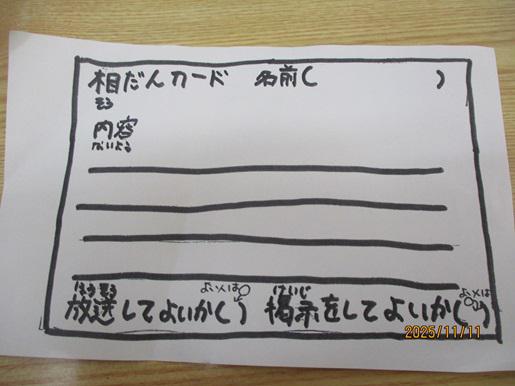 相だんカード 名前( )
そう
内容
ないよう
ほうそう よい人は○ けいじ よい人は○
放送してよいか( ) 掲示をしてよいか( )
2025/11/11